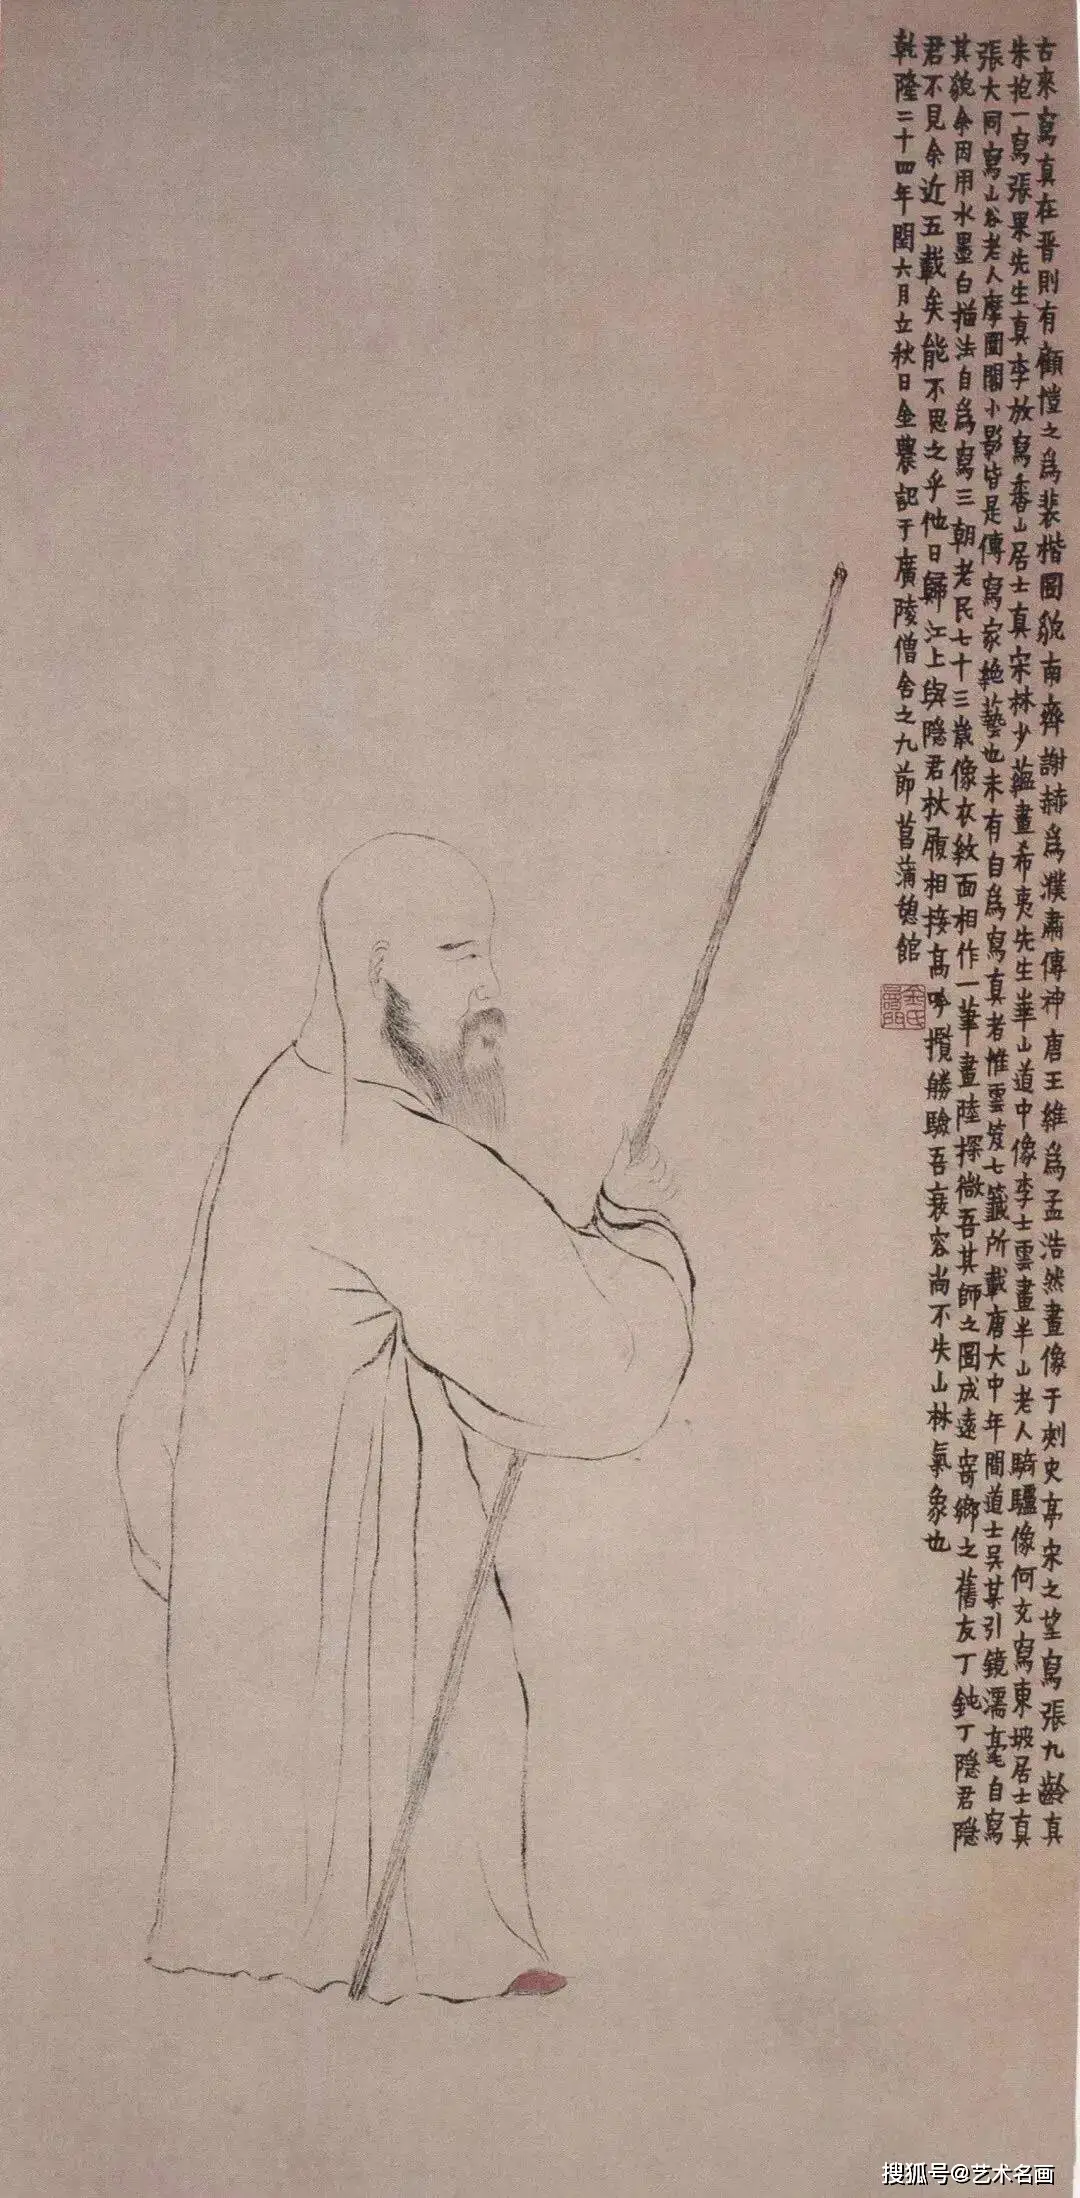 古來寫真在晉則有顧愷之爲裴楷圖貌南齊謝赫爲濮肅傳神唐王維爲孟浩然畫像于刺史亭宋之望寫張九齡真
朱抱一寫張果先生真李放寫香山居士真宋林少蘊畫希夷先生華山道中像李士雲畫半山老人騎驢像何充寫東坡居士真
張大同寫山谷老人摩圍閣小影皆是傳寫家絶藝也未有自爲寫真者惟雲笈七籤所載唐大中年間道士吴某引鏡濡毫自寫
其貌余因用水墨白描法自爲寫三朝老民七十三歲像衣紋面相作一筆畫陸探微吾其師之圖成遠寄鄉之舊友丁鈍丁隱君隱
君不見余近五載矣能不思之乎他日歸江上與隱君杖履相接高吟攬勝驗吾衰容尚不失山林氣象也
乾隆二十四年閏六月立秋日金農記于廣陵僧舍之九節菖蒲憩館
金氏壽門
搜狐号@艺术名画